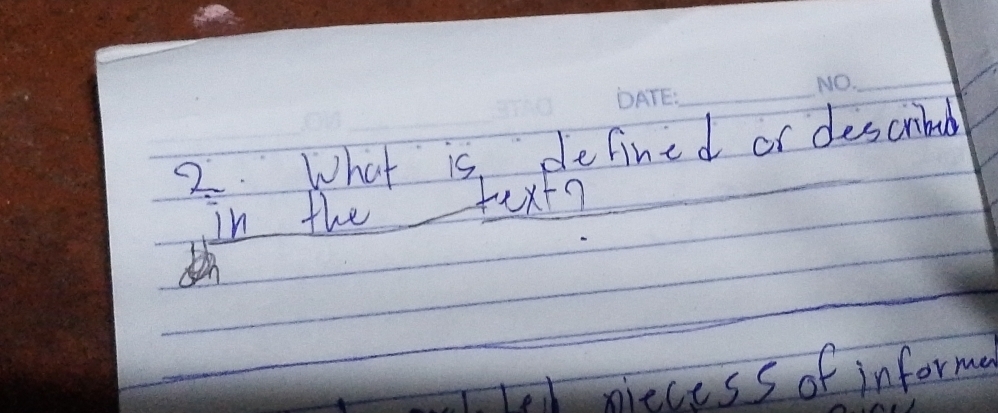 DATE: NO.
2. What is defined or described
in the text?
pieces of informa